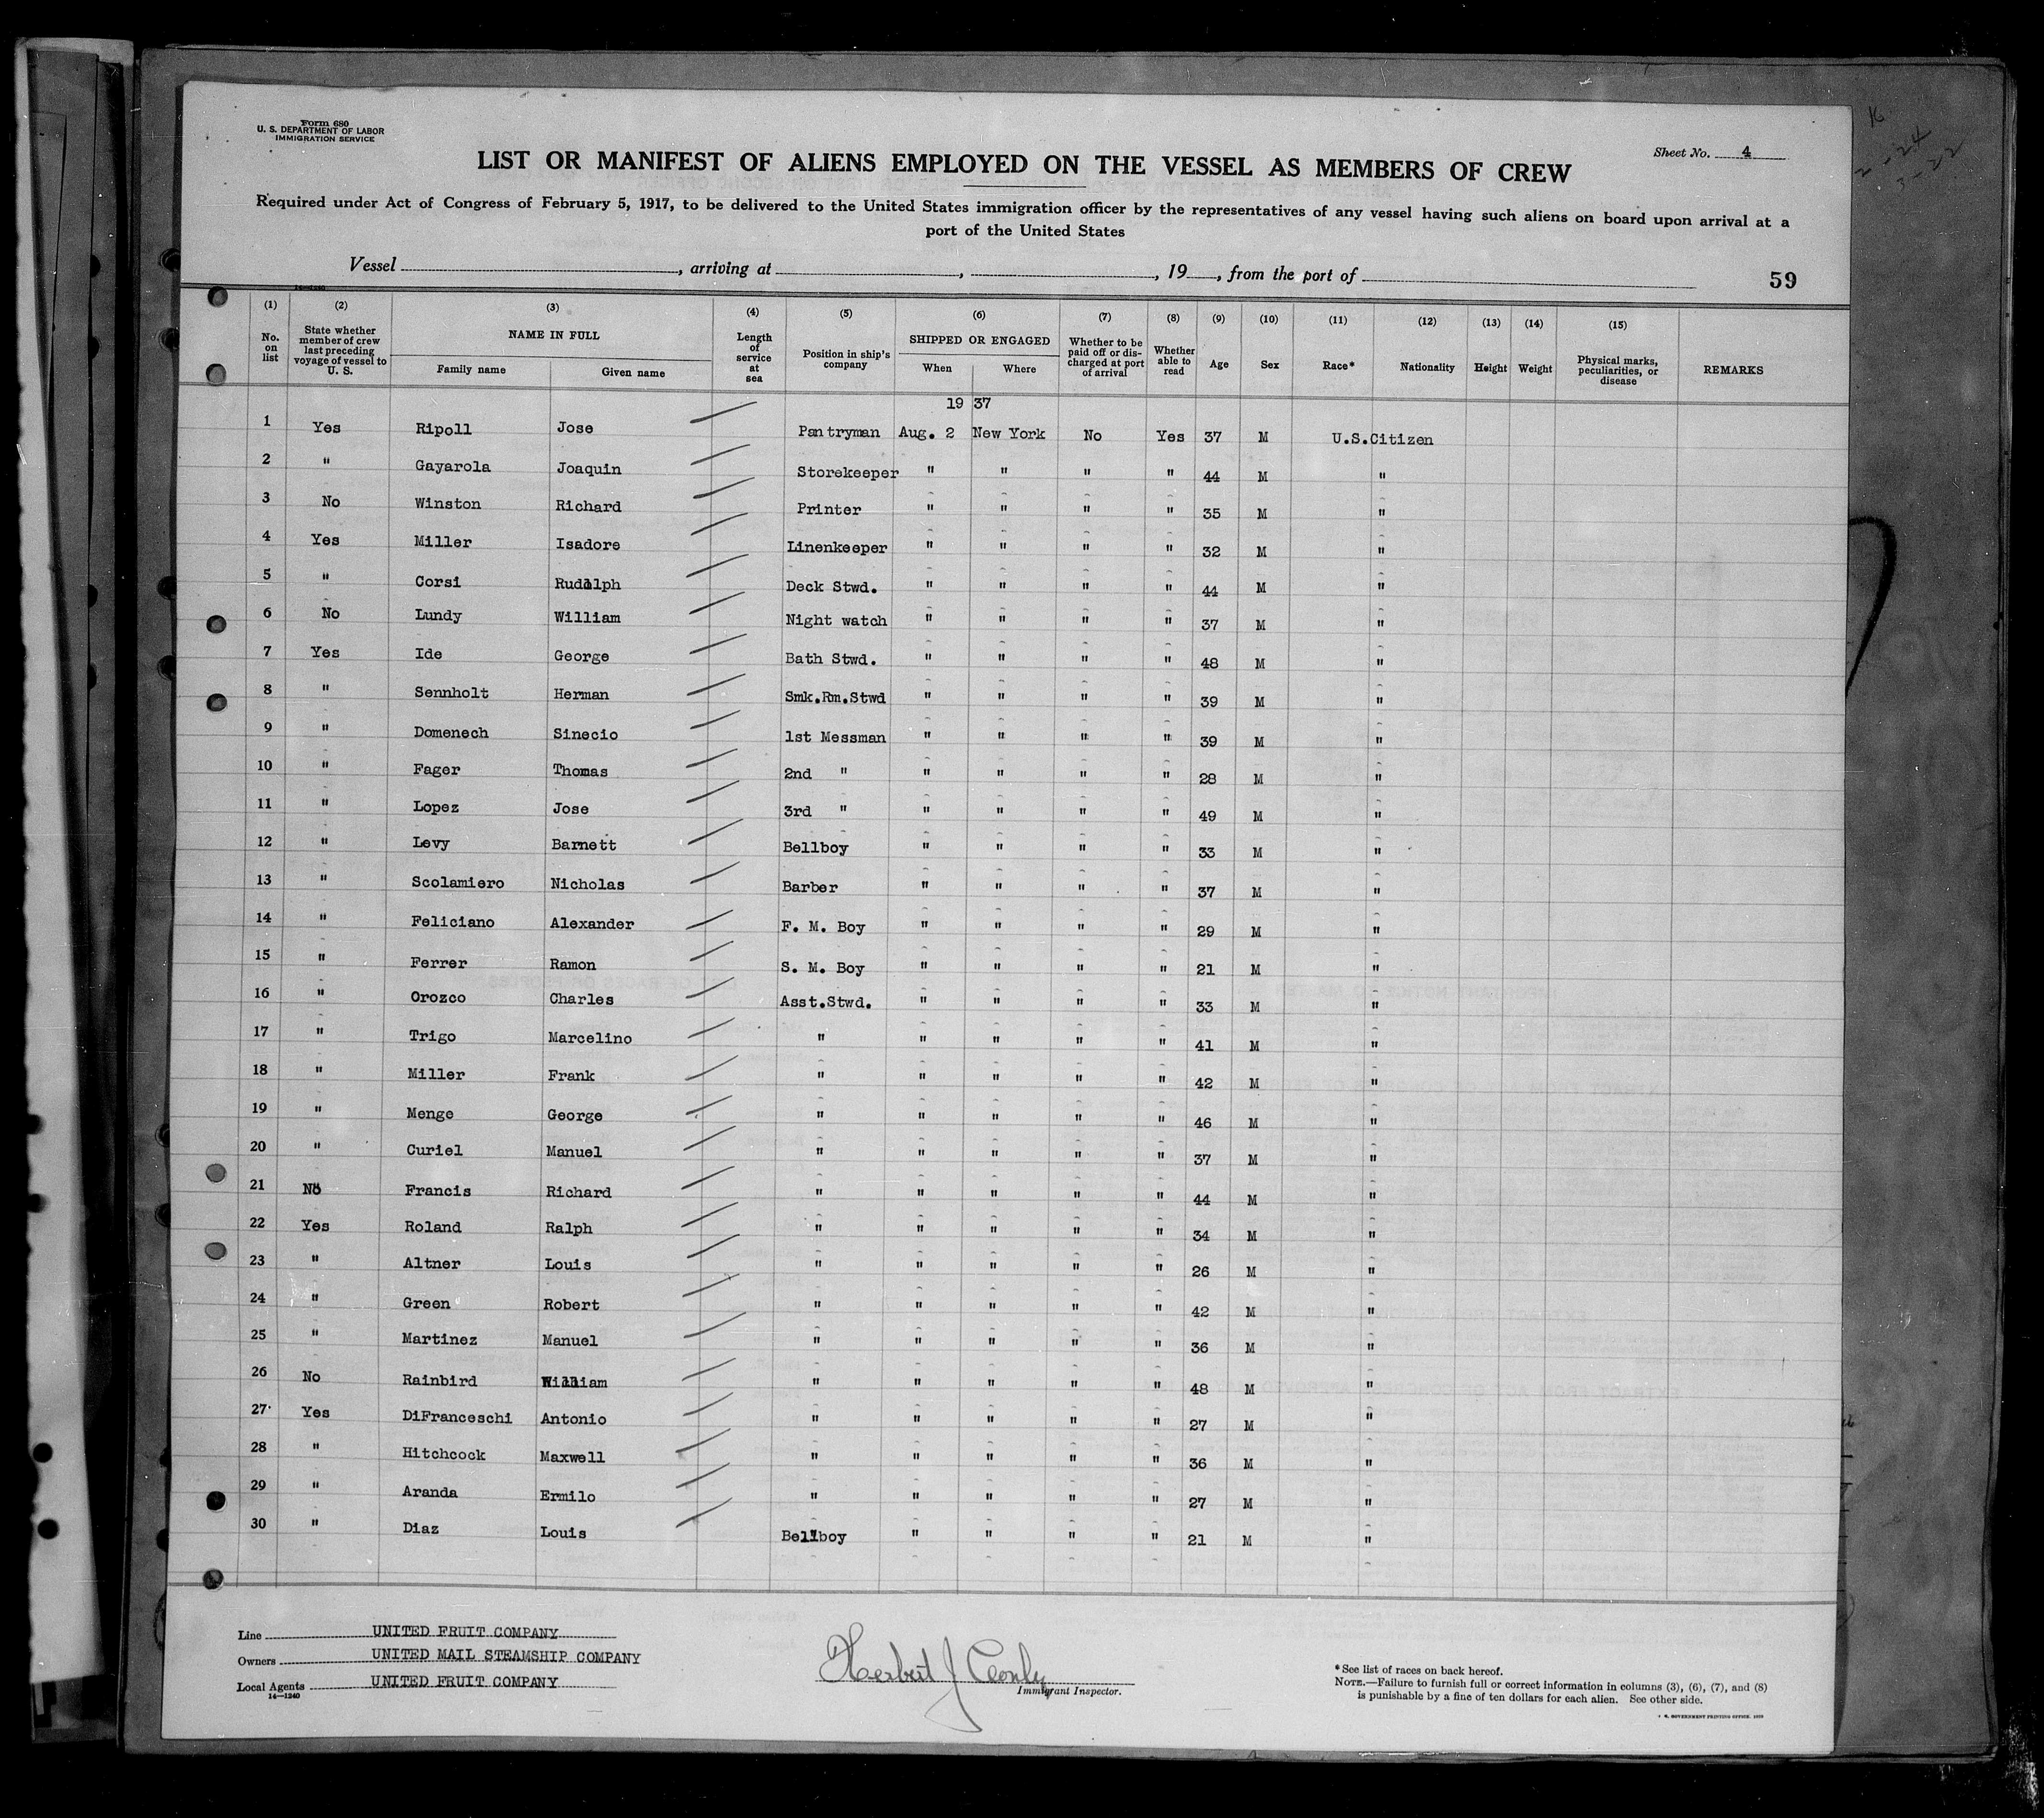 Form 680
U. S. DEPARTMENT OF LABOR
IMMIGRATION SERVICE
Sheet No. 4
LIST OR MANIFEST OF ALIENS EMPLOYED ON THE VESSEL AS MEMBERS OF CREW
Required under Act of Congress of February 5, 1917, to be delivered to the United States immigration officer by the representatives of any vessel having such aliens on board upon arrival at a
port of the United States
Vessel , arriving at , , 19 , from the port of
59
(1) No. on list (2) State whether member of crew last preceding voyage of vessel to U. S. (3) NAME IN FULL Family name Given name (4) Length of service at sea (5) Position in ship's company (6) SHIPPED OR ENGAGED When Where (7) Whether to be paid off or discharged at port of arrival (8) Whether able to read (9) Age (10) Sex (11) Race* (12) Nationality (13) Height (14) Weight (15) Physical marks, peculiarities, or disease REMARKS
19 37
1 Yes Ripoll Jose Pantryman Aug. 2 New York No Yes 37 M U.S.Citizen
2 " Gayarola Joaquin Storekeeper " " " " 44 M "
3 No Winston Richard Printer " " " " 35 M "
4 Yes Miller Isadore Linenkeeper " " " " 32 M "
5 " Corsi Rudolph Deck Stwd. " " " " 44 M "
6 No Lundy William Night watch " " " " 37 M "
7 Yes Ide George Bath Stwd. " " " " 48 M "
8 " Sennholt Herman Smk.Rm.Stwd " " " " 39 M "
9 " Domenech Sinecio 1st Messman " " " " 39 M "
10 " Fager Thomas 2nd " " " " " 28 M "
11 " Lopez Jose 3rd " " " " " 49 M "
12 " Levy Barnett Bellboy " " " " 33 M "
13 " Scolamiero Nicholas Barber " " " " 37 M "
14 " Feliciano Alexander F. M. Boy " " " " 29 M "
15 " Ferrer Ramon S. M. Boy " " " " 21 M "
16 " Orozco Charles Asst.Stwd. " " " " 33 M "
17 " Trigo Marcelino " " " " " 41 M "
18 " Miller Frank " " " " " 42 M "
19 " Menge George " " " " " 46 M "
20 " Curiel Manuel " " " " " 37 M "
21 No Francis Richard " " " " " 44 M "
22 Yes Roland Ralph " " " " " 34 M "
23 " Altner Louis " " " " " 26 M "
24 " Green Robert " " " " " 42 M "
25 " Martinez Manuel " " " " " 36 M "
26 No Rainbird William " " " " " 48 M "
27 Yes DiFranceschi Antonio " " " " " 27 M "
28 " Hitchcock Maxwell " " " " " 36 M "
29 " Aranda Ermilo " " " " " 27 M "
30 " Diaz Louis Bellboy " " " " 21 M "
Line UNITED FRUIT COMPANY
Owners UNITED MAIL STEAMSHIP COMPANY
Local Agents UNITED FRUIT COMPANY
14—1240
Herbert J
Immigrant Inspector.
* See list of races on back hereof.
NOTE.—Failure to furnish full or correct information in columns (3), (6), (7), and (8)
is punishable by a fine of ten dollars for each alien. See other side.